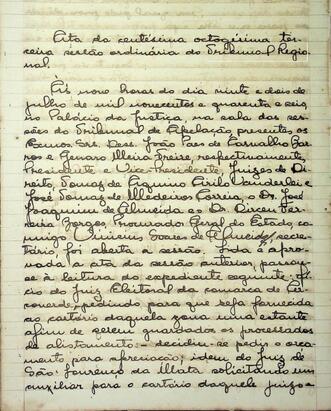 Acta da centésima octogésima ter-
ceira sessão ordinária do Tribunal Regio-
nal.
Ás nove horas do dia vinte e dois de
julho de mil novecentos e quarenta e seis,
no Palácio da Justiça, na sala das ses-
sões do Tribunal de Apelação, presentes os
Exmos. Srs. Des. João Paes de Carvalho Bar-
ros e Genaro Freire, respectivamente,
Presidente e Vice-Presidente, Juizes de
Direito, Tomaz de Aquino Cirilo Wanderlei e
José Tomaz de Medeiros Correia, o Dr. José
Joaquim de Almeida e o Dr. Dirceu Fer-
reira Borges, Procurador Geral do Estado, co-
migo Soares de secre-
tário, foi aberta a sessão. Lida e apro-
vada a ata da sessão anterior, passou-
se à leitura do expediente seguinte: ofí-
cio do Juiz Eleitoral da comarca de
pedindo para que seja fornecida
ao cartório daquela zona uma estante
afim de serem guardados os processados
de alistamento: - decidiu-se pedir o orça-
mento para apreciação; idem do Juiz de
São Lourenço da Mata solicitando um
auxiliar para o cartório daquele juizo -